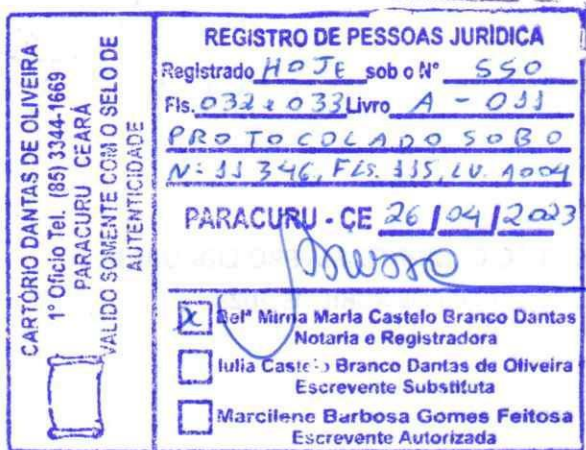 CARTÓRIO DANTAS DE OLIVEIRA
1º Ofício Tel. (85) 3344-1669
PARACURU CEARÁ
VALIDO SOMENTE COM O SELO DE
AUTENTICIDADE
REGISTRO DE PESSOAS JURÍDICA
Registrado HOJE sob o Nº 550
Fls. 032 e 033 Livro A - 011
PROTOCOLADO SOB O
Nº 11346, FLS. 115, LV. A004
PARACURU - CE 26/04/2023
X Belª Mirna Maria Castelo Branco Dantas
Notaria e Registradora
Iulia Castelo Branco Dantas de Oliveira
Escrevente Substituta
Marcilene Barbosa Gomes Feitosa
Escrevente Autorizada